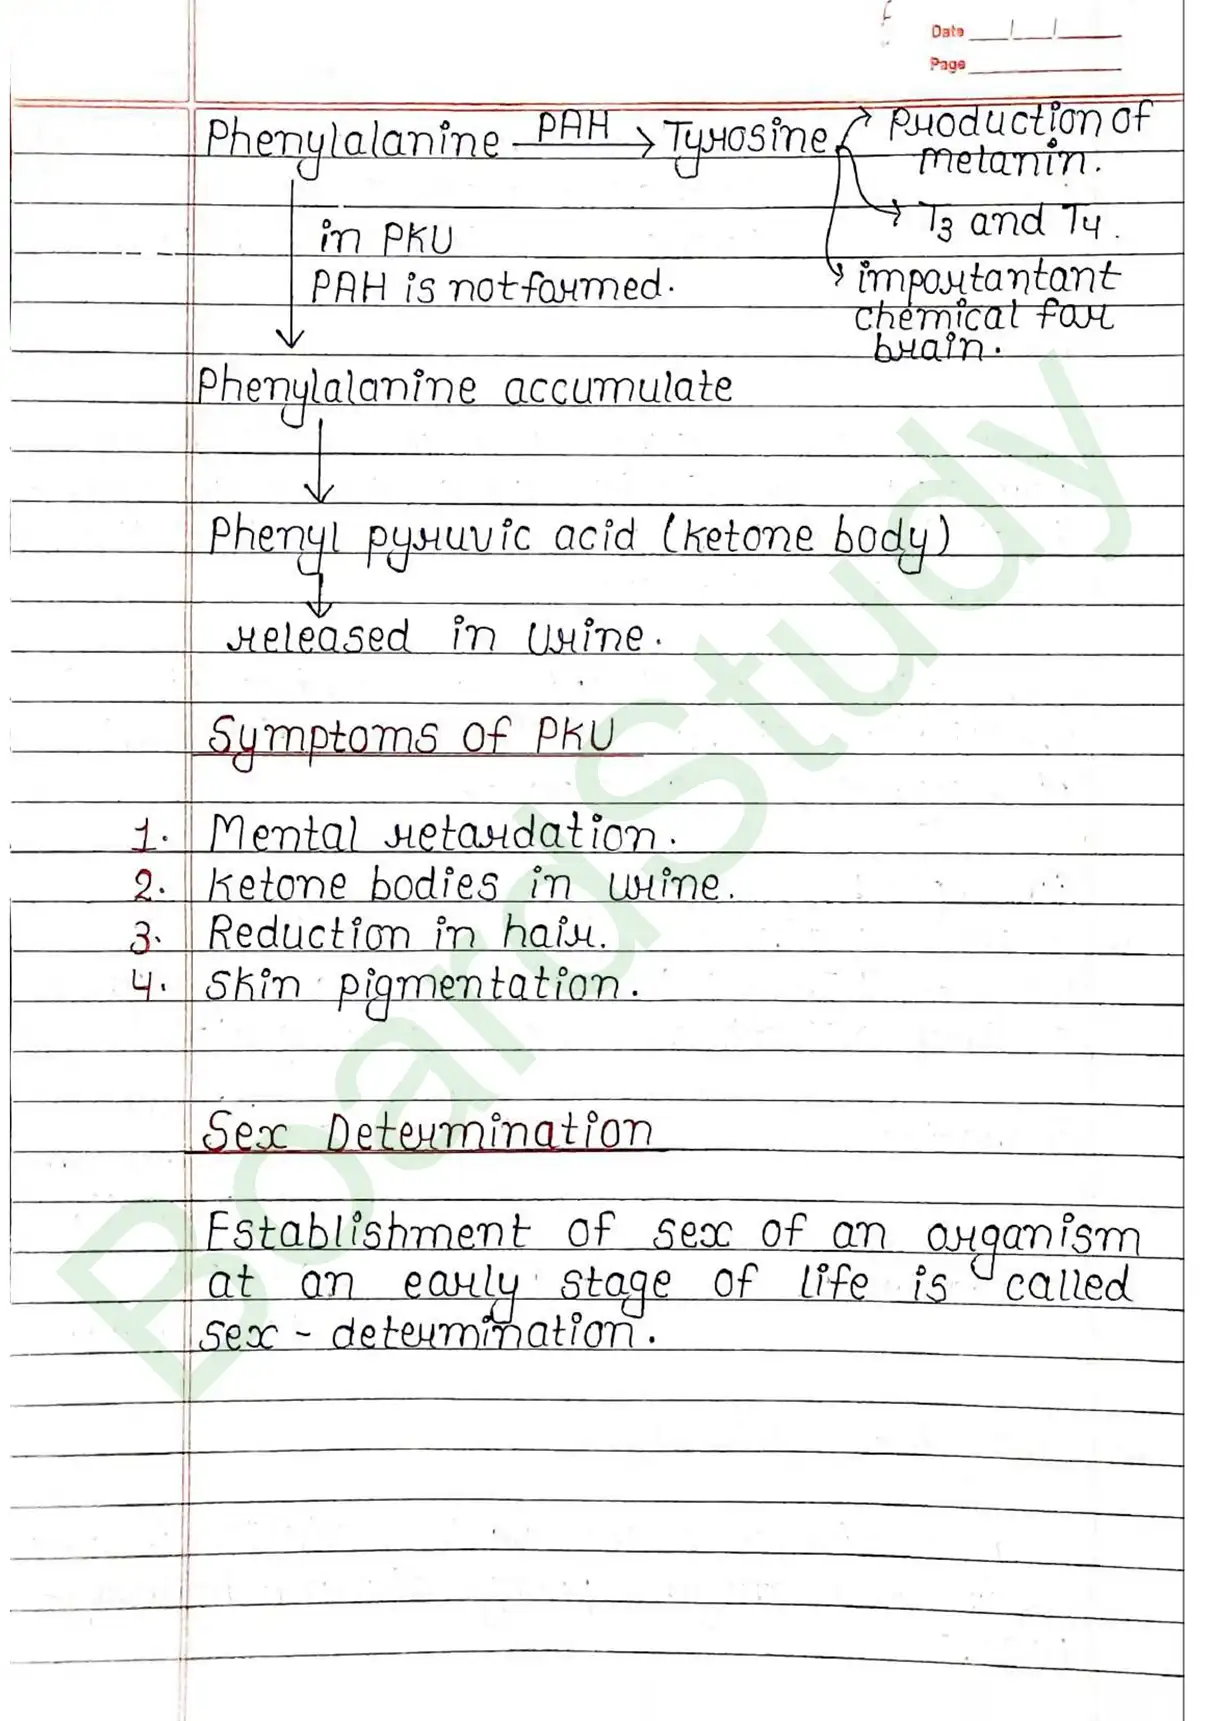 Date
Page
Phenylalanine PAH → Tyrosine → Production of
melanin.
→ T3 and T4.
in PKU
PAH is not formed.
→ importantant
chemical for
brain.
Phenylalanine accumulate
Phenyl pyruvic acid (ketone body)
released in Urine.
Symptoms of PKU
1. Mental retardation.
2. Ketone bodies in urine.
3. Reduction in hair.
4. Skin pigmentation.
Sex Determination
Establishment of sex of an organism
at an early stage of life is called
sex - determination.
BoardStudy